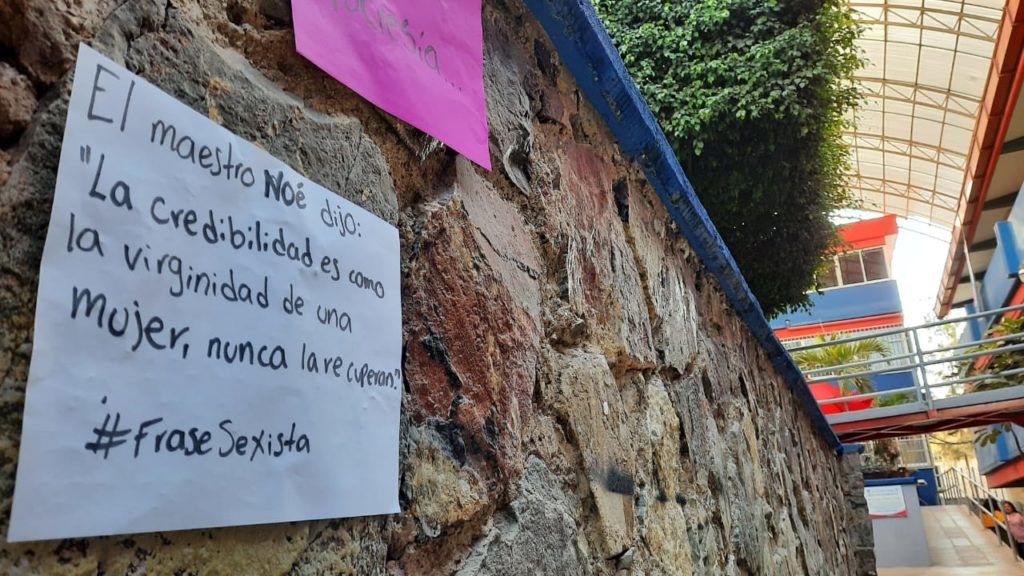 El maestro Noé dijo:
"La credibilidad es como
la virginidad de una
mujer, nunca la recuperan."
#FraseSexista